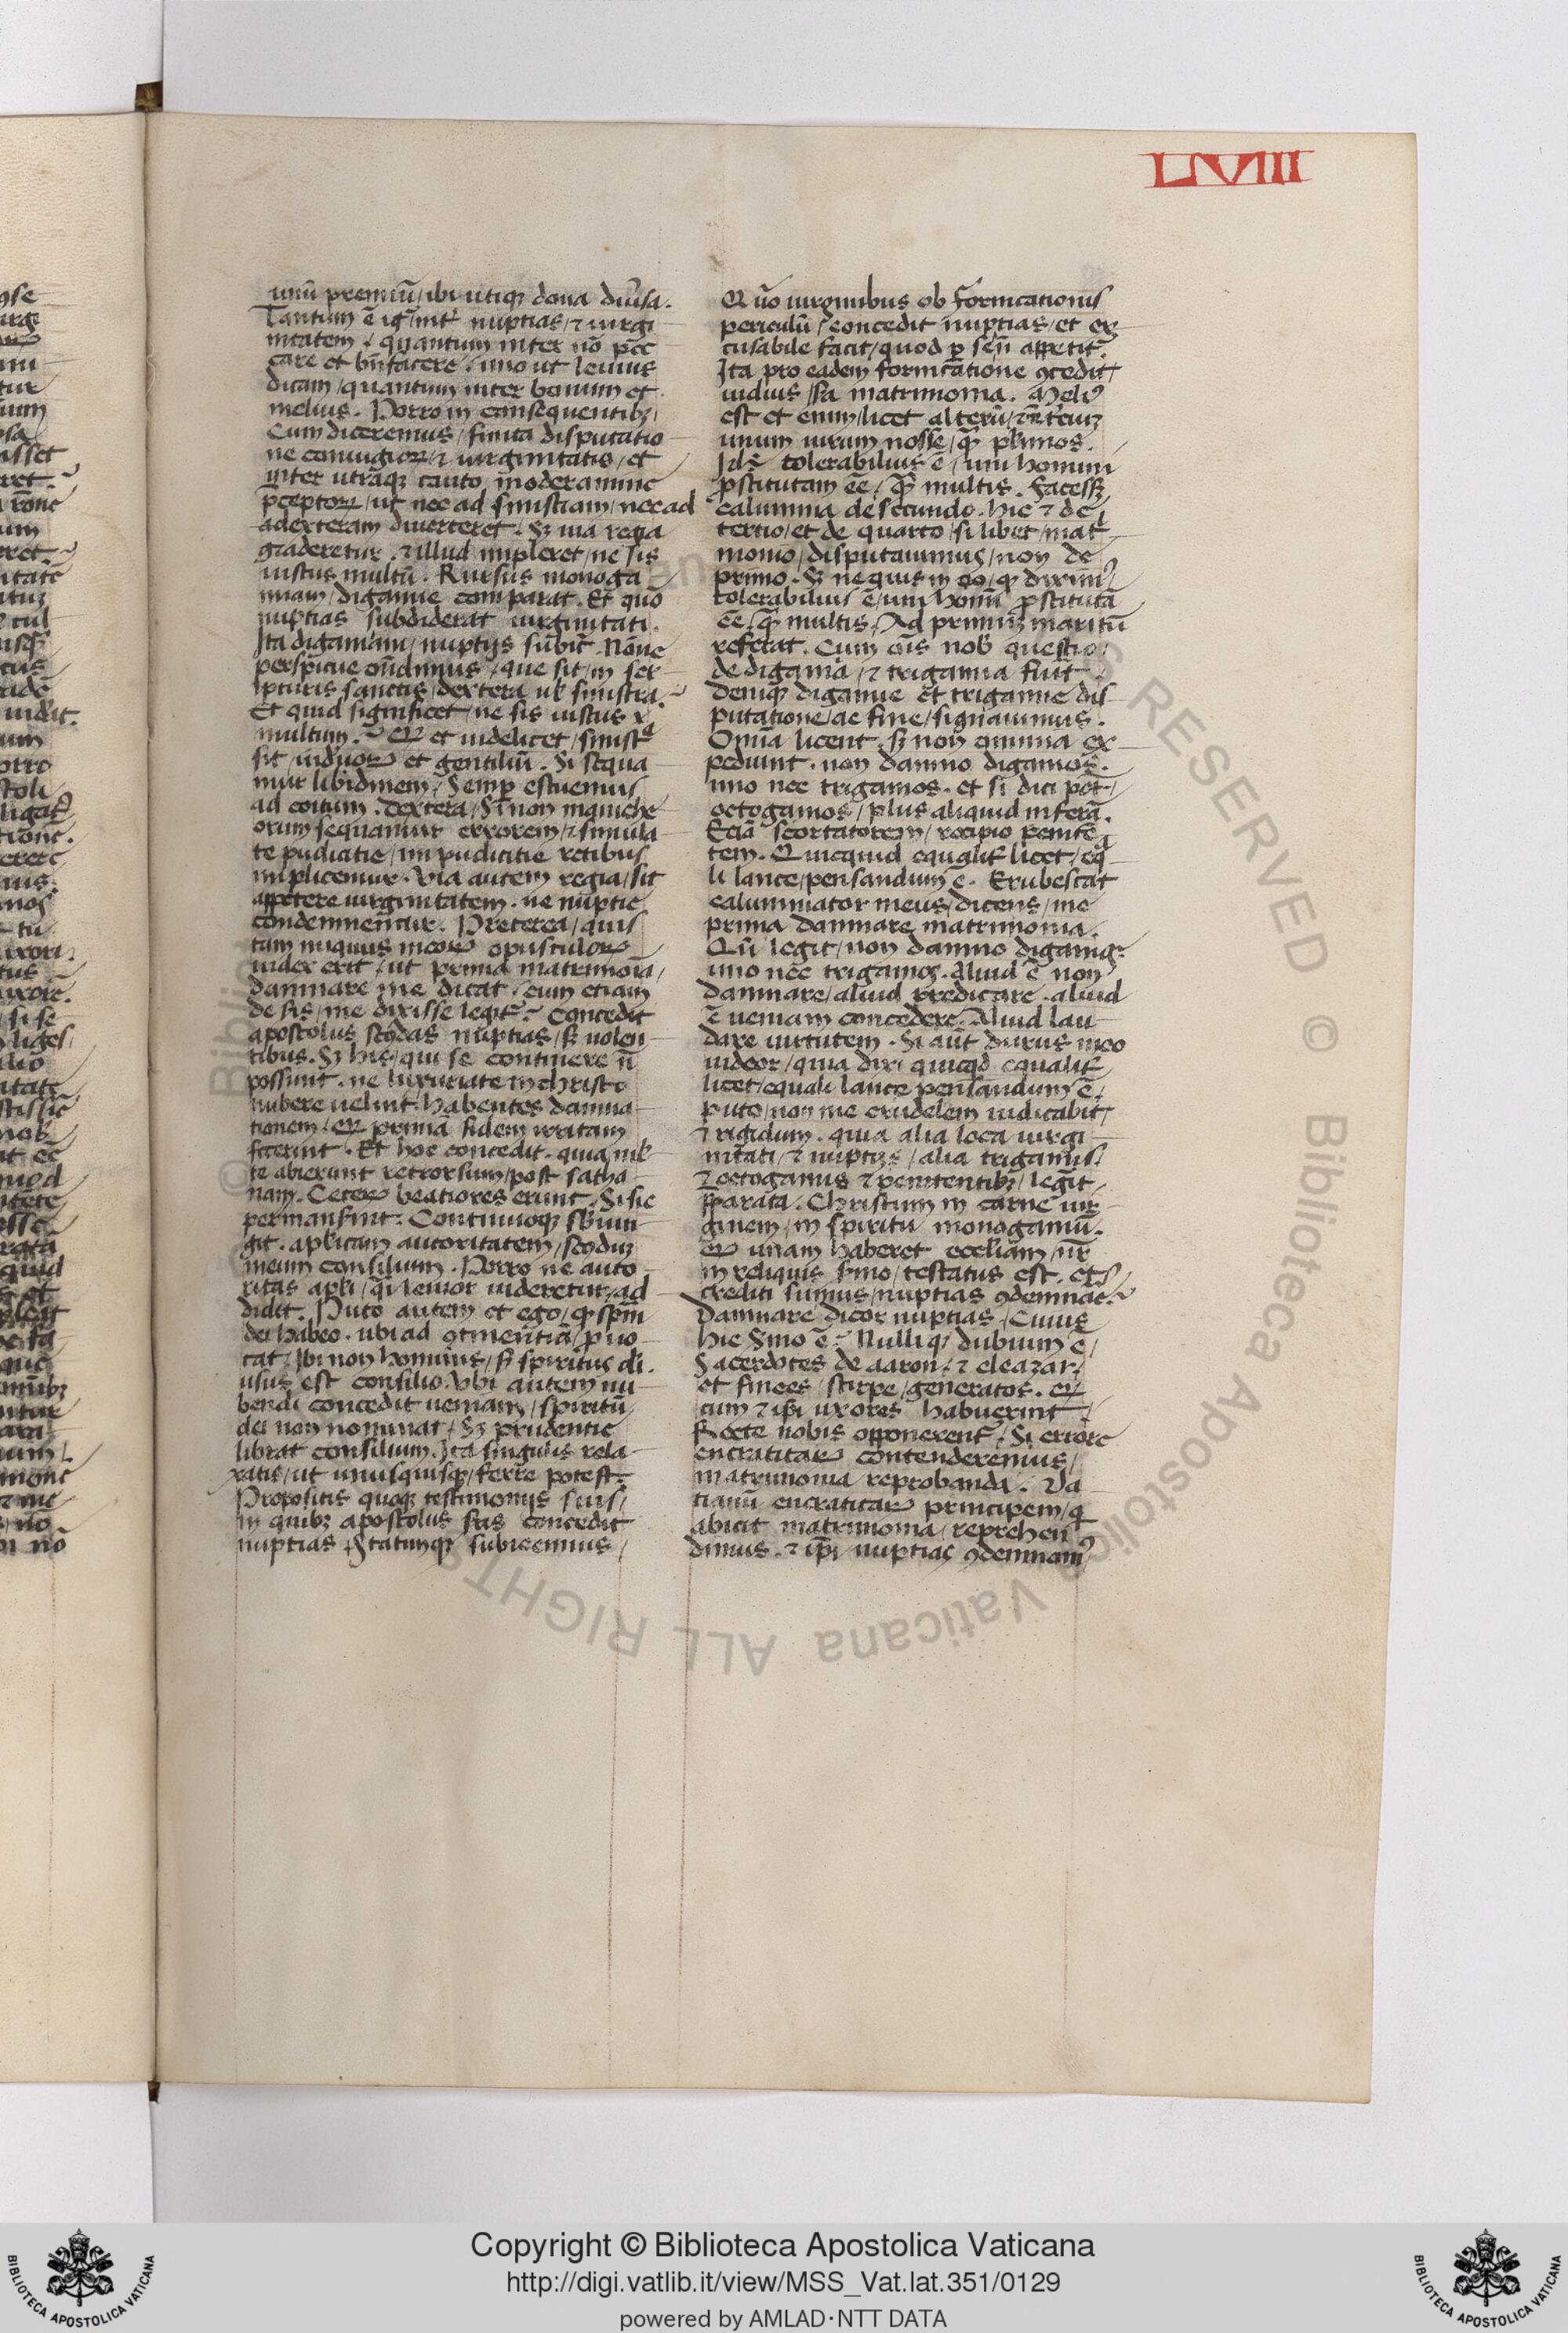 LVIII
unū premiū / ibi utiqꝫ dona diūsa.
Tantum ē igr̄ / int̄ nuptias / ⁊ uirgi
nitatem / quantum inter nō pec
care et bn̄facere / imo ut leuius
dicam / quantum inter bonum et
melius. Porro in consequentibꝫ /
Cum diceremus / finita disputatio
ne coniugioꝝ / ⁊ uirginitatis / et
inter utrāqꝫ cauto moderamine
p̄ceptoꝝ / ut nec ad sinistram / nec ad
adexteram diuerteret / Sꝫ uia regia
graderetur. ⁊ illud impleret / ne sis
iustus multū. Rursus monoga
miam / digamie comparat. Et quō
nuptias subdiderat uirginitati.
Ita digamiam / nuptijs subit̄. Nōne
perspicue on̄dimus / que sit / in scr
ipturis sanctis / dextera uꝉ sinistra.
Et quid significet / ne sis iustus
multum. et uidelicet / sinistͣ
sit / iudeoꝝ et gentiliū. Si sequa
mur libidinem / Semꝑ estuemus
ad coitum. Dextera / Si non maniche
orum sequamur errorem / ⁊ simula
te pudicitie / impudicitie retibus
implicemur. Via autem regia / sit
appetere uirginitatem. ne nuptie
condemnent̄ur. Preterea / quis
tam iniquus meoꝝ opusculoꝝ
iudex erit / ut prima matrimoīa /
damnare me dicat / cum etiam
de sis / me dixisse legit̄. Concedit
apostolus sc̄das nuptias / sꝫ uolen
tibus. Sꝫ his / qui se continere n̄
possunt. ne luxuriate in christo
nubere uelint. habentes damna
tionem / prima fidem irritam
fecerint. Et hoc concedit. quia m̄l
te abierunt retrorsum / post satha
nam. Ceteꝝ beatiores erunt. Si sic
permanserint. Continuoqꝫ sb̄iun
git. apl̄icam autoritatem / sc̄dꝫ
meum consilium. Porro ne auto
ritas apl̄i / q̄i leuior uideretur / ad
didit. Puto autem et ego / ꝙ sp̄m
dei habeo. ubi ad ꝯtinentiā / ꝓuo
cat / Ibi non hominis / sꝫ spiritus di.
usus est consilio. Vbi autem nu
bendi concedit ueniam / spiritū
dei non nominat / Sꝫ prudentie
librat consilium. Ita singulis rela
xatis / ut unusquisqꝫ / ferre potest.
Propositis quoqꝫ testimonijs suis /
in quibꝫ apostolus sc̄as concedit
nuptias / Statimqꝫ subicemus /
Q uō uirginibus ob fornicationis
periculū / concedit nuptias / et ex
cusabile facit / quod ꝑ se n̄ appetit̄.
Ita pro eadem fornicatione ꝯcedit /
uiduis / sc̄a matrimonia. Meliꝰ
est et enim / licet alterū / ⁊ terciuꝫ
unum uirum nosse / q̄ꝫ plurimos.
Idē tolerabilius ē / uni homini
ꝓstitutam ēē / q̄ꝫ multis. facess
calumnia de secundo. hic ⁊ de
tertio / et de quarto / si libet / mat̄
monio / disputauimus / non de
primo. Sꝫ ne quis in eo / ꝙ diximꝰ /
tolerabilius ē / uni homī ꝓstitutā
ēē / q̄ꝫ multis. Ad primuꝫ maritū
referat. Cum oīs nob̄ questio /
de digamia / ⁊ trigamia fuīt
deniqꝫ digamie et trigamie dis
putatione / ac fine / signauimus.
Omīa licent. sꝫ non omnia ex
pediunt. non damno digamos.
imo nec trigamos. et si dici pōt /
octogamos / plus aliquid inferā.
Eciā scortatorem / recipio penitē
tem. Quicquid equalit̄ licet / eq̄
li lance / pensandum ē. Erubescat
calumniator meus / dicens / me
prima damnare matrimonia.
Qn̄ legit / non damno digamos.
imo nec trigamos. Aliud ē non
damnare / aliud predicare. aliud
ē ueniam concedere. Aliud lau
dare uirtutem. Si aūt durus in eo
uideor / quia dixi quicqd equalit̄
licet / equali lance pensandum ē /
puto / non me crudelem iudicabit /
⁊ rigidum. quia alia loca uirgi
nitati / ⁊ nuptijs / alia trigamis.
⁊ octogamis ⁊ penitentibꝫ / legīt
p̄parata. Christum in carne uir
ginem / in spiritu monogamū.
unam haberet eccl̄iam / nr̄
in reliquis sermo / testatus est.
crediti sumus / nuptias ꝯdemnare.
Damnare dicor nuptias / Cuius
hic sermo ē. Nulli qꝫ dubium ē /
Sacerdotes de aaron. ⁊ eleazar /
et finees / stirpe / generatos.
cum ⁊ ip̄i uxores habuerint /
Recte nobis opponerent̄ / Si errore
encratitaꝝ contenderemus /
matrimonia reprobanda. Ta
tianū encratitaꝝ principem / q̄
abicit matrimonia / reprehen
dimus. ⁊ ip̄i / nuptias ꝯdemnamꝰ
Copyright © Biblioteca Apostolica Vaticana
http://digi.vatlib.it/view/MSS_Vat.lat.351/0129
powered by AMLAD·NTT DATA
BIBLIOTECA APOSTOLICA VATICANA
BIBLIOTECA APOSTOLICA VATICANA
© Biblioteca Apostolica Vaticana ALL RIGHTS RESERVED © Biblioteca Apostolica Vaticana